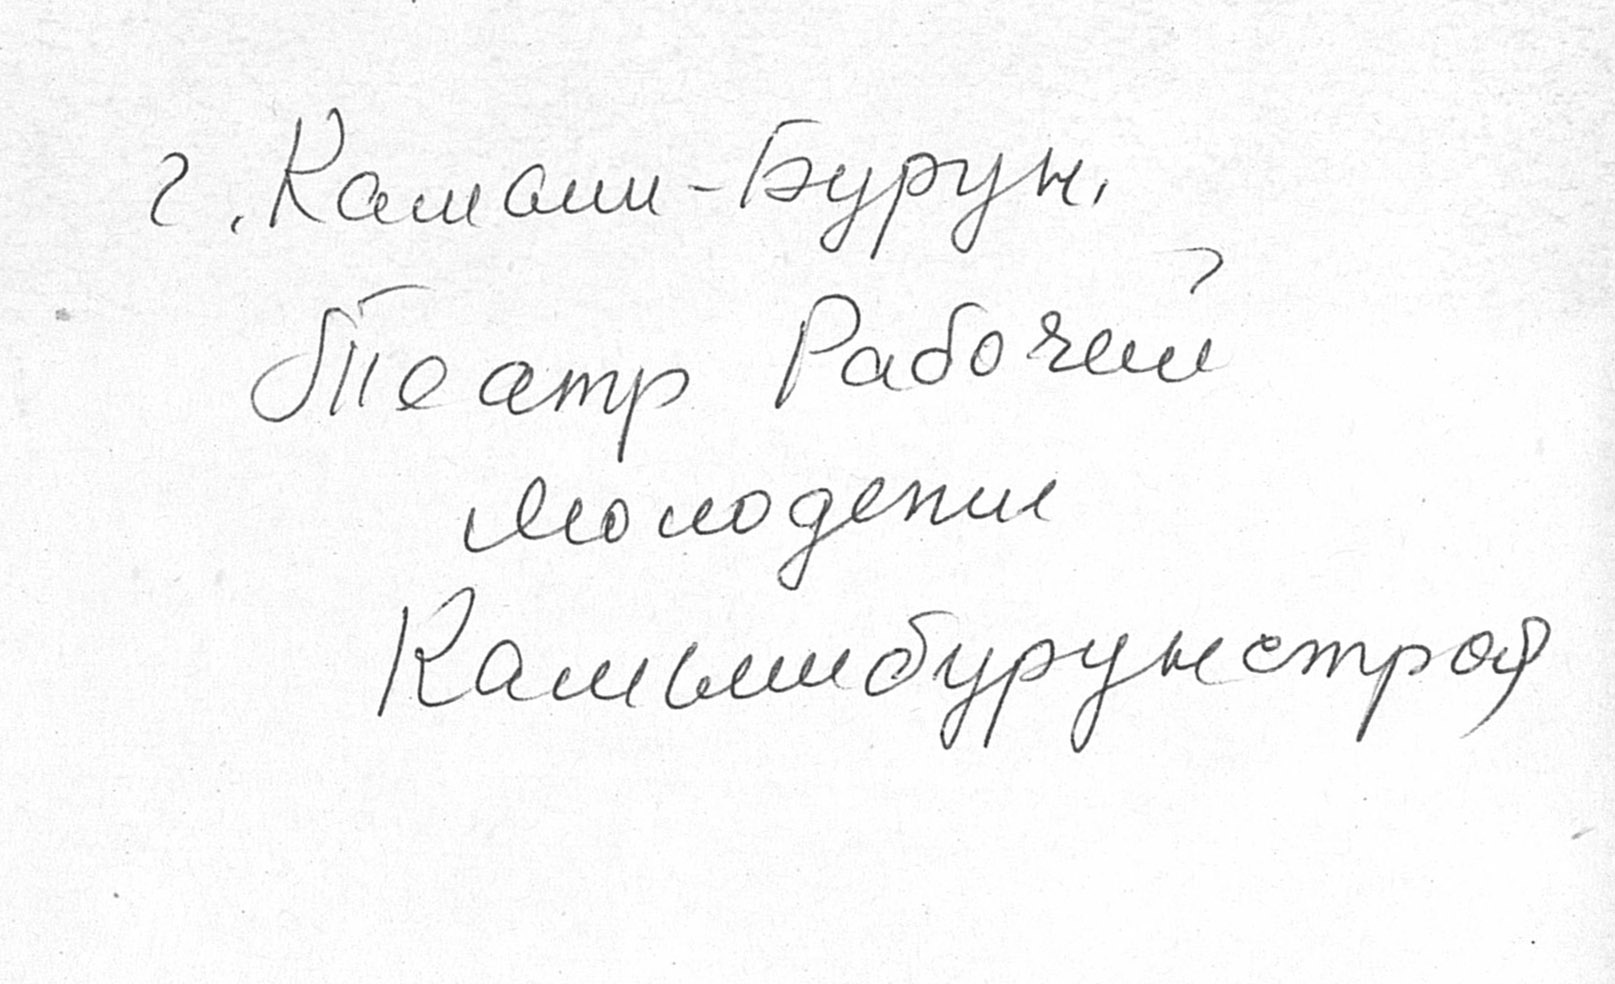 г. Камыш-Бурун,
Театр Рабочей
молодежи
Камышбурунстроя